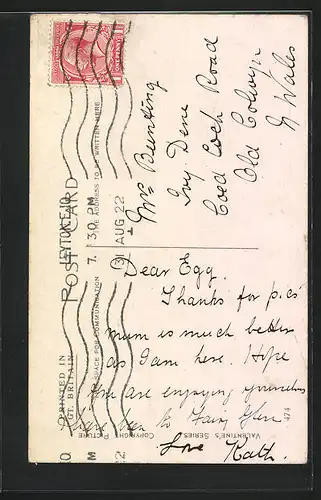 POST CARD
THE ADDRESS TO BE WRITTEN HERE
SPACE FOR COMMUNICATION
PRINTED IN
GT. BRITAIN
LEYTON E.10
7.30 PM
31 AUG 22
Mrs Bunting
Ivy Dene
Coed Coch Road
Old Colwyn
N Wales
Dear Egg.
Thanks for p.c's
mum is much better
as I am here. Hope
you are enjoying yourselves
there been to Fairy Glen
Love Kath.
VALENTINE'S SERIES
COPYRIGHT PICTURE
474